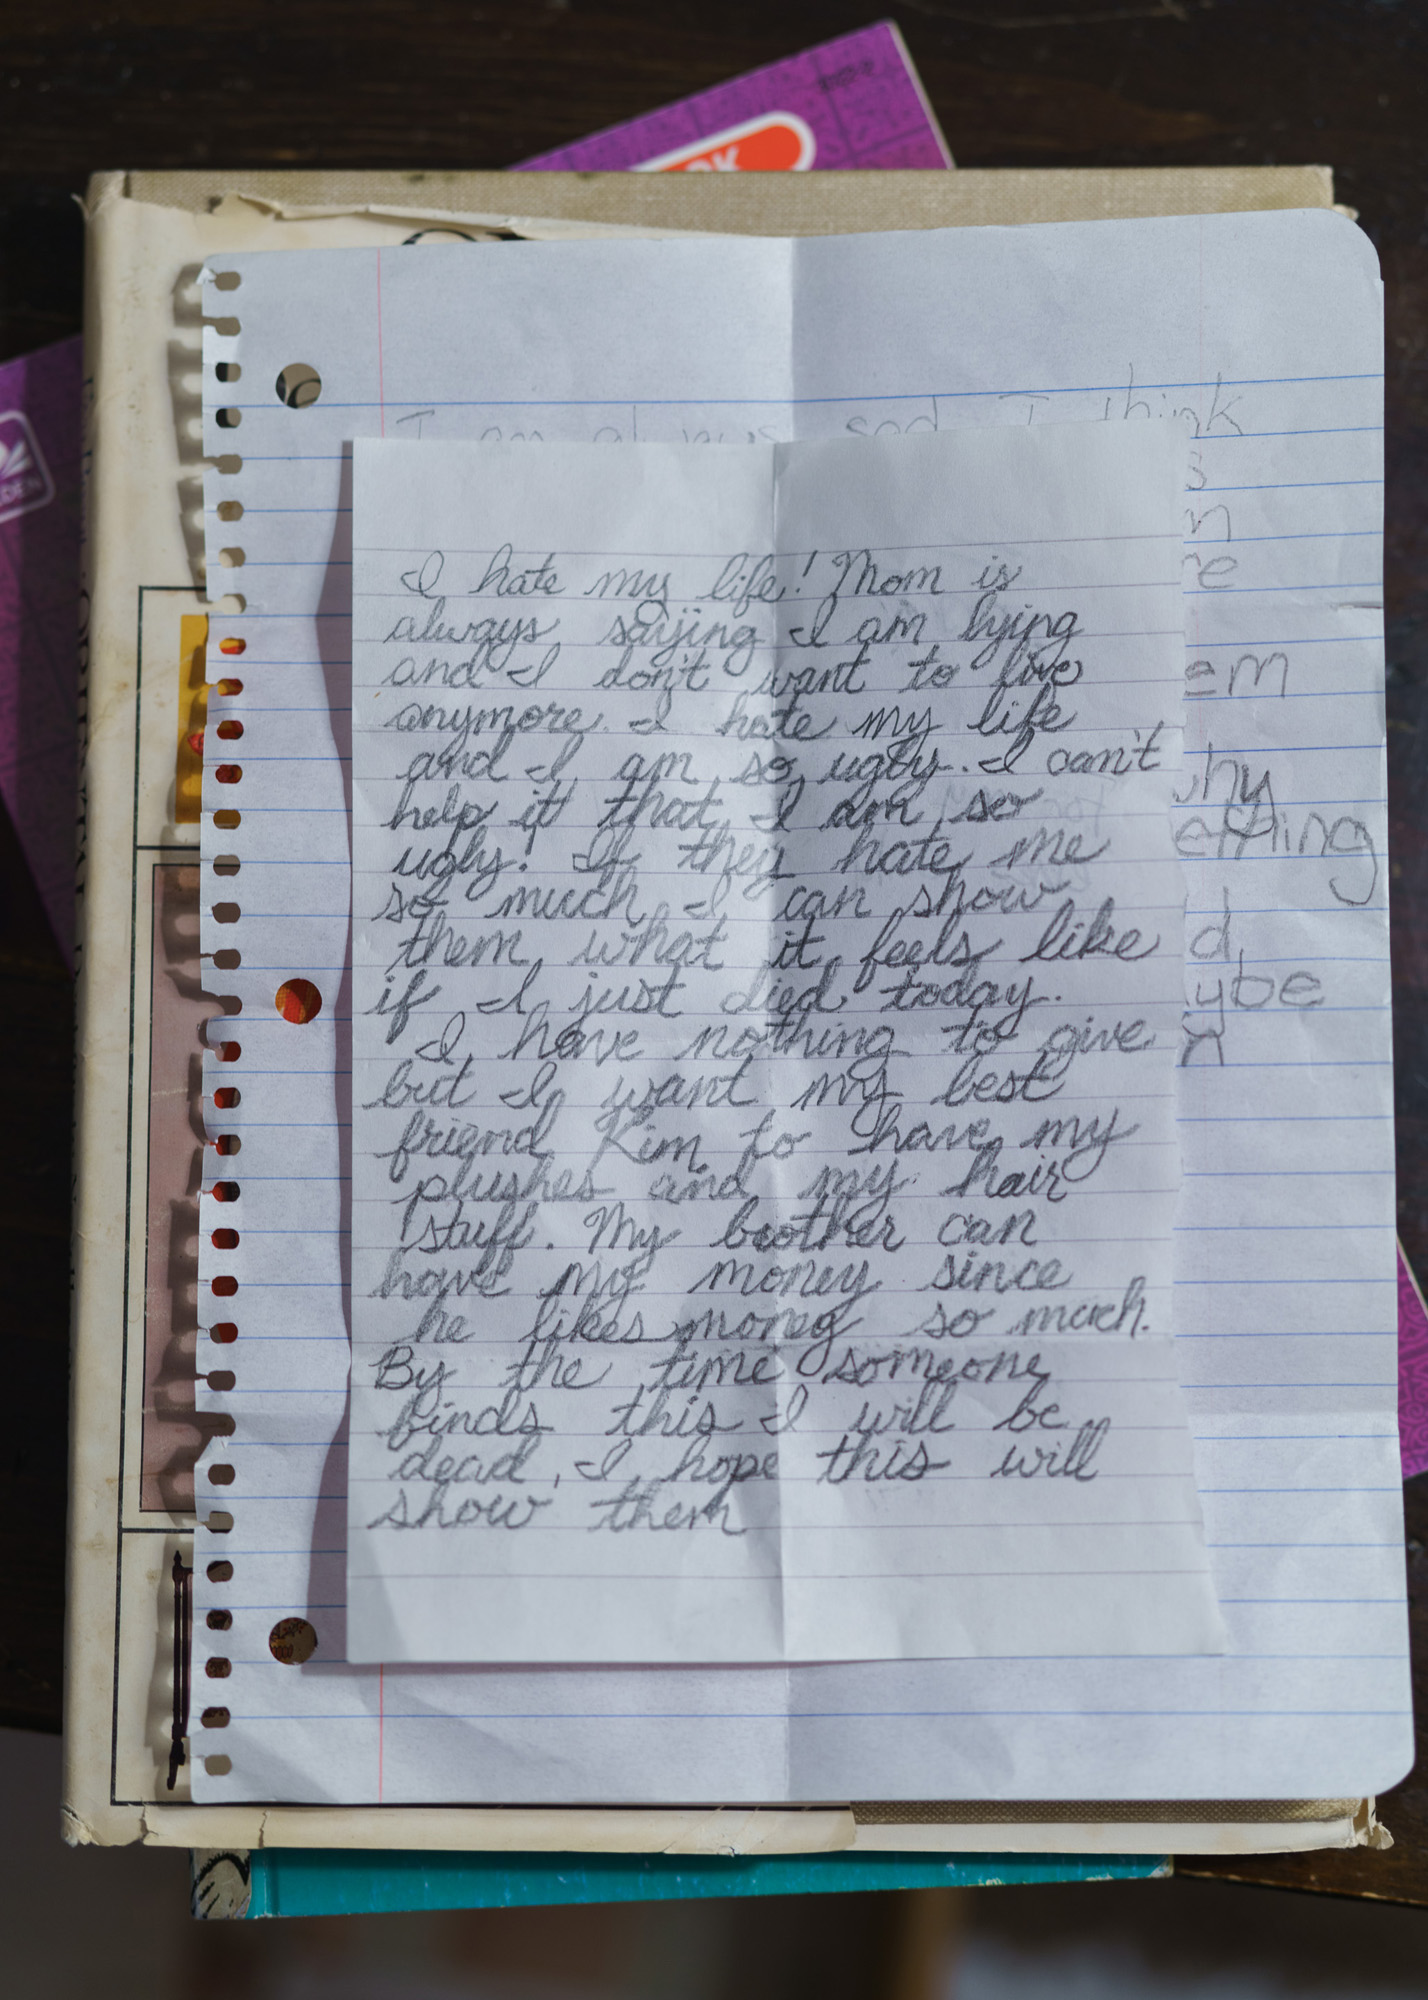 I am always sad I think
I hate my life! Mom is
always saying I am lying
and I don't want to live
anymore. I hate my life
and I am so ugly. I can't
help it that I am so
ugly! If they hate me
so much I can show
them what it feels like
if I just died today.
I have nothing to give
but I want my best
friend Kim to have my
plushes and my hair
stuff. My brother can
have my money since
he likes money so much.
By the time someone
finds this I will be
dead, I hope this will
show them